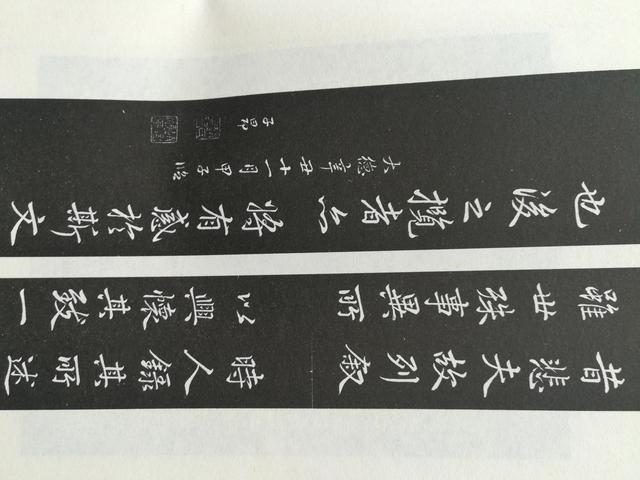 昔悲夫故列叙時人錄其所述
雖世殊事異所以興懷其致一
也後之攬者亦將有感於斯文
大德辛丑十一月甲子臨
子昂